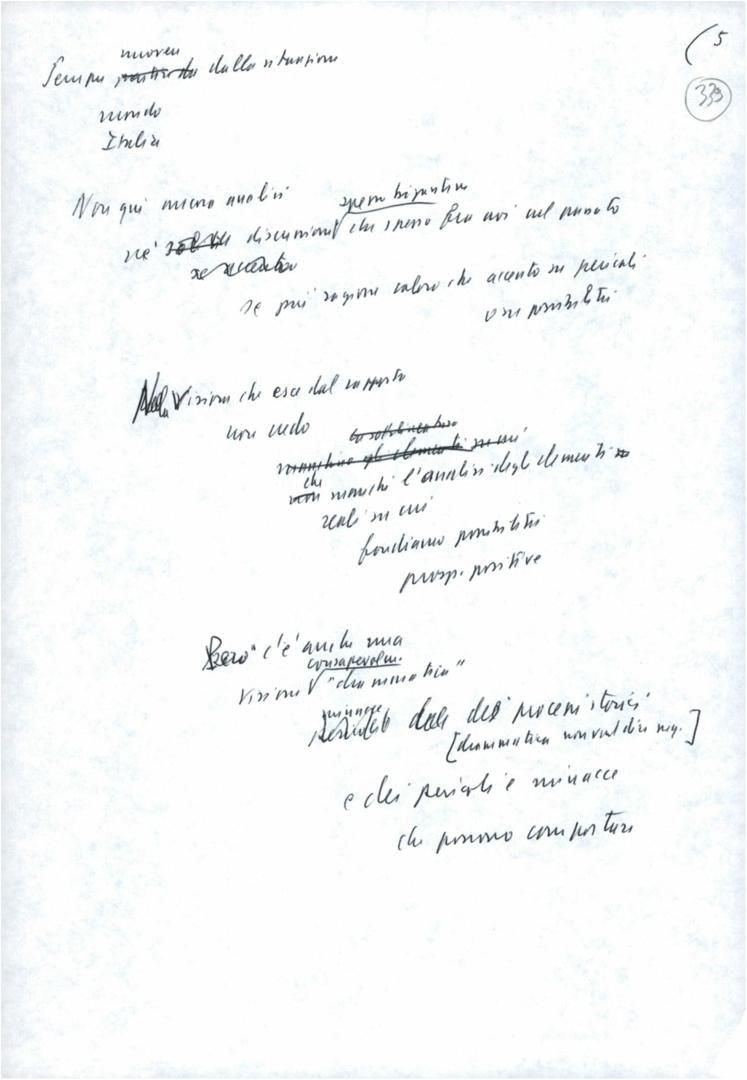 5
339
muovere
Sempre partire da dalla situazione
mondo
Italia
Non qui nuova analisi
spero bizantine
né discussioni che spesso fra noi nel passato
se accento
se più ragione coloro che accento su pericoli
o su possibilità
Nella Visione che esce dal rapporto
non vedo
su cui
che
non manchi l'analisi degli elementi
reali su cui
fondiamo possibilità
prosp. positive
Però c'è anche una
consapevolm.
visione "drammatica"
minacce
pericoli dei processi storici
[drammatica non vuol dire neg.]
e dei pericoli e minacce
che possono comportare